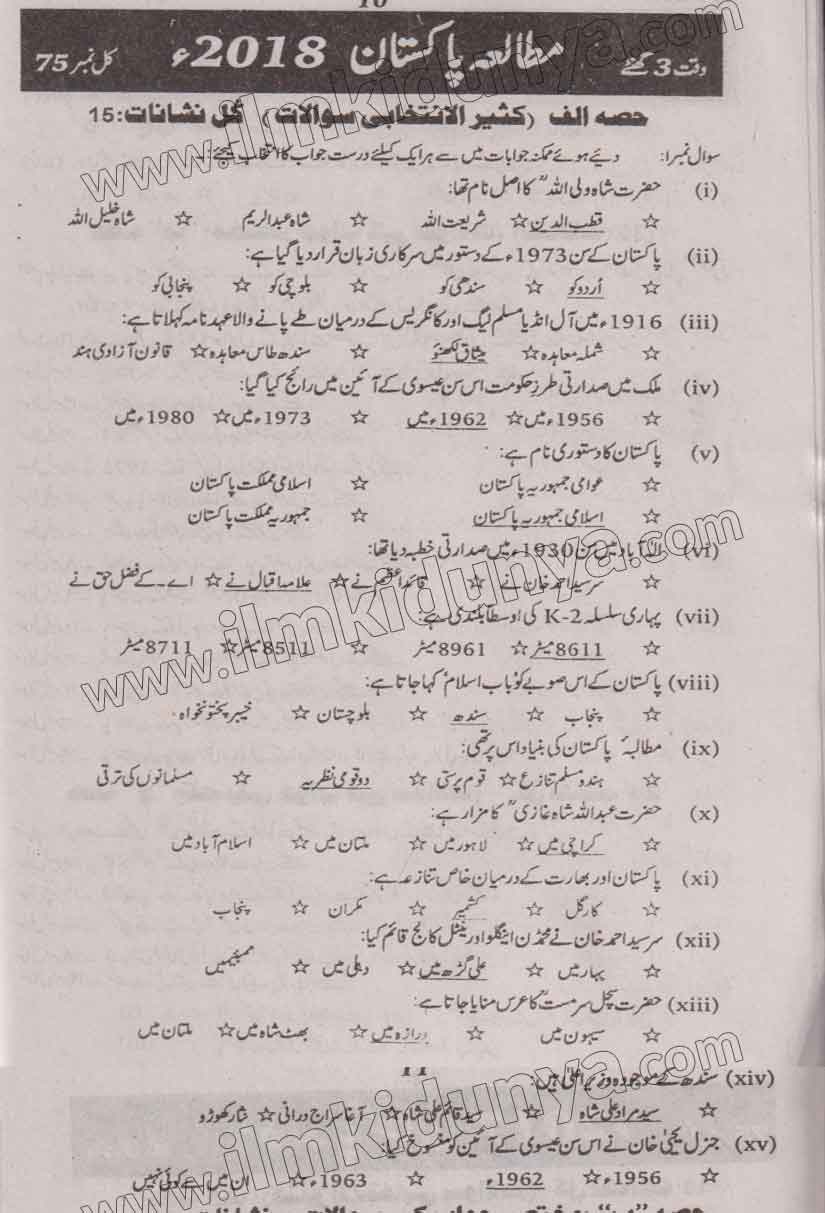 10
وقت 3 گھنٹے مطالعہ پاکستان 2018ء کل نمبر 75
حصہ الف (کثیر الانتخابی سوالات) کل نشانات: 15
سوال نمبر۱: دیئے ہوئے ممکنہ جوابات میں سے ہر ایک کیلئے درست جواب کا انتخاب کیجئے:۔
(i) حضرت شاہ ولی اللہؒ کا اصل نام تھا:
☆ قطب الدین ☆ شریعت اللہ ☆ شاہ عبدالریم ☆ شاہ خلیل اللہ
(ii) پاکستان کے سن 1973ء کے دستور میں سرکاری زبان قرار دیا گیا ہے:
☆ اُردو کو ☆ سندھی کو ☆ بلوچی کو ☆ پنجابی کو
(iii) 1916ء میں آل انڈیا مسلم لیگ اور کانگریس کے درمیان طے پانے والا عہد نامہ کہلاتا ہے:
☆ شملہ معاہدہ ☆ میثاق لکھنؤ ☆ سندھ طاس معاہدہ ☆ قانون آزادی ہند
(iv) ملک میں صدارتی طرزِ حکومت اس سن عیسوی کے آئین میں رائج کیا گیا:
☆ 1956ء میں ☆ 1962ء میں ☆ 1973ء میں ☆ 1980ء میں
(v) پاکستان کا دستوری نام ہے:
☆ عوامی جمہوریہ پاکستان ☆ اسلامی مملکت پاکستان
☆ اسلامی جمہوریہ پاکستان ☆ جمہوریہ مملکت پاکستان
(vi) الہ آباد میں سن 1930ء میں صدارتی خطبہ دیا تھا:
☆ سرسید احمد خان نے ☆ قائداعظم نے ☆ علامہ اقبال نے ☆ اے۔ کے فضل حق نے
(vii) پہاری سلسلہ K-2 کی اوسطاً بلندی ہے:
☆ 8611 میٹر ☆ 8961 میٹر ☆ 8511 میٹر ☆ 8711 میٹر
(viii) پاکستان کے اس صوبے کو باب اسلام کہا جاتا ہے:
☆ پنجاب ☆ سندھ ☆ بلوچستان ☆ خیبر پختونخواہ
(ix) مطالبۂ پاکستان کی بنیاد اس پر تھی:
☆ ہندو مسلم تنازع ☆ قوم پرستی ☆ دو قومی نظریہ ☆ مسلمانوں کی ترقی
(x) حضرت عبداللہ شاہ غازیؒ کا مزار ہے:
☆ کراچی میں ☆ لاہور میں ☆ ملتان میں ☆ اسلام آباد میں
(xi) پاکستان اور بھارت کے درمیان خاص تنازعہ ہے:
☆ کارگل ☆ کشمیر ☆ مکران ☆ پنجاب
(xii) سرسید احمد خان نے محمڈن اینگلو اورینٹل کالج قائم کیا:
☆ بہار میں ☆ علی گڑھ میں ☆ دہلی میں ☆ ممبئیمیں
(xiii) حضرت سچل سرمست کا عرس منایا جاتا ہے:
☆ سیہون میں ☆ درازہ میں ☆ بھٹ شاہ میں ☆ ملتان میں
11
(xiv) سندھ کے موجودہ وزیر اعلیٰ ہیں:
☆ سید مراد علی شاہ ☆ سید قائم علی شاہ ☆ آغا سراج درانی ☆ نثار کھوڑو
(xv) جنرل یحییٰ خان نے اس سن عیسوی کے آئین کو منسوخ کیا:
☆ 1956ء ☆ 1962ء ☆ 1963ء ☆ ان میں سے کوئی نہیں
www.ilmkidunya.com
www.ilmkidunya.com
www.ilmkidunya.com